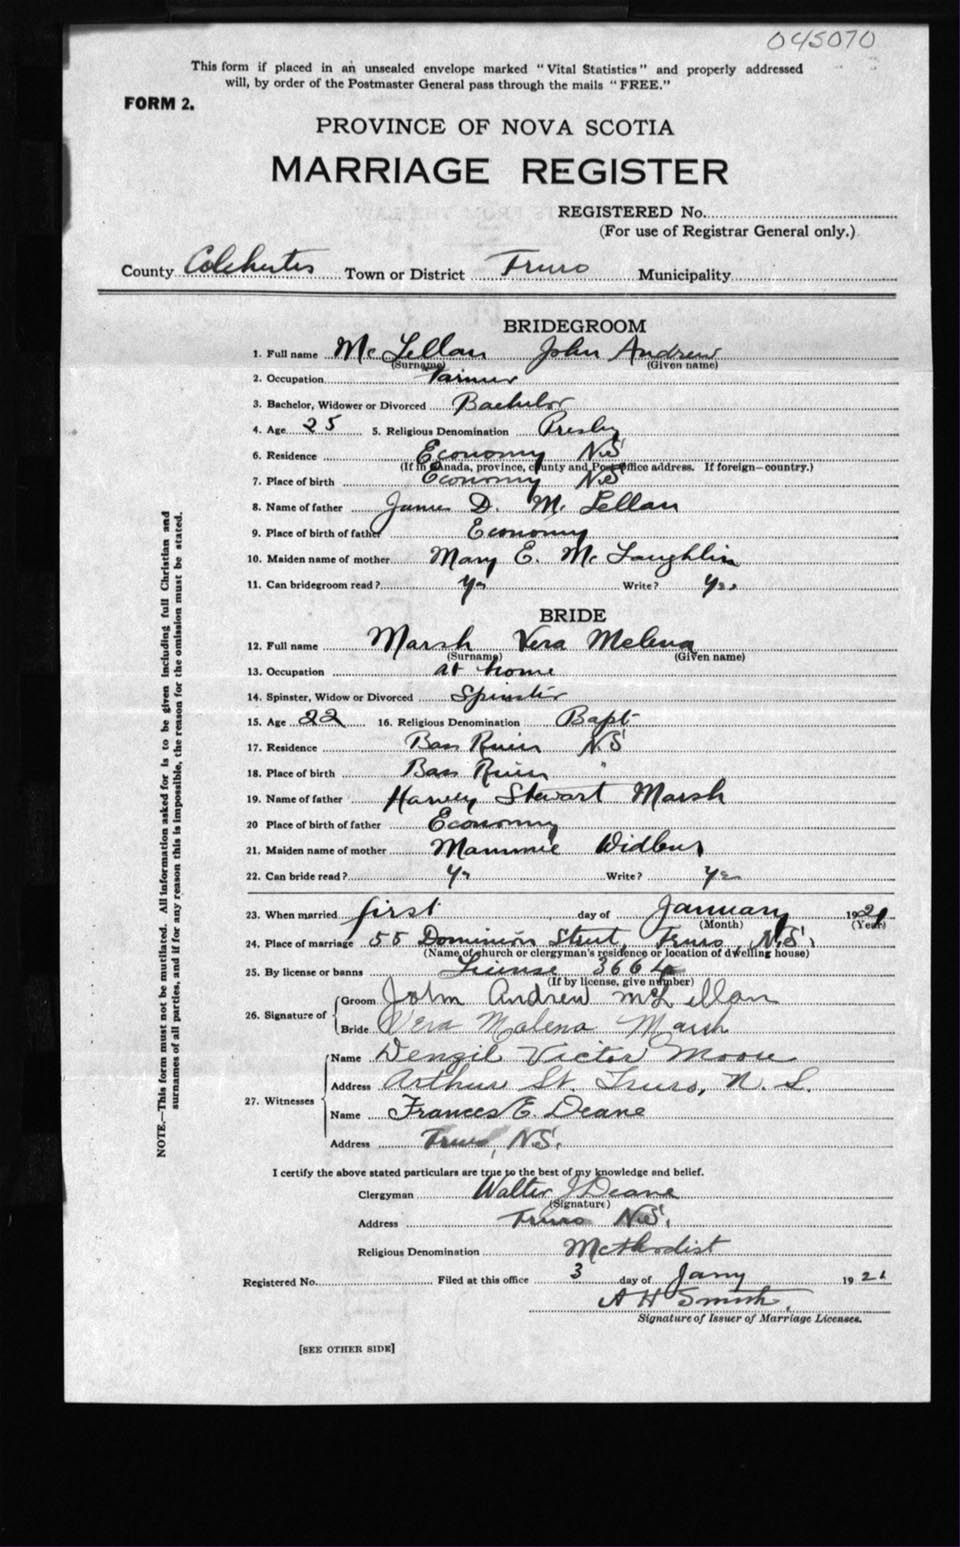 045070
This form if placed in an unsealed envelope marked "Vital Statistics" and properly addressed
will, by order of the Postmaster General pass through the mails "FREE."
FORM 2.
PROVINCE OF NOVA SCOTIA
MARRIAGE REGISTER
REGISTERED No.
(For use of Registrar General only.)
County Colchester Town or District Truro Municipality
BRIDEGROOM
1. Full name Mc Lellan John Andrew
(Surname) (Given name)
2. Occupation Farmer
3. Bachelor, Widower or Divorced Bachelor
4. Age 25 5. Religious Denomination Presby
6. Residence Economy N.S
(If in Canada, province, county and Post Office address. If foreign—country.)
7. Place of birth Economy N.S
8. Name of father James D. Mc Lellan
9. Place of birth of father Economy
10. Maiden name of mother Mary E. Mc Laughlin
11. Can bridegroom read? Yes Write? Yes
BRIDE
12. Full name Marsh Vera Melena
(Surname) (Given name)
13. Occupation at home
14. Spinster, Widow or Divorced Spinster
15. Age 22 16. Religious Denomination Bapt
17. Residence Bass River N.S
18. Place of birth Bass River "
19. Name of father Harvey Stewart Marsh
20 Place of birth of father Economy
21. Maiden name of mother Mammie
22. Can bride read? Yes Write? Yes
23. When married first day of January 1921
(Month) (Year)
24. Place of marriage 55 Dominion Street, Truro, N.S.
(Name of church or clergyman's residence or location of dwelling house)
25. By license or banns License 3664
(If by license, give number)
26. Signature of Groom John Andrew McLellan
Bride Vera Malena Marsh
27. Witnesses Name Denzil Victor Moore
Address Arthur St. Truro, N. S.
Name Frances E. Deane
Address Truro, N.S.
I certify the above stated particulars are true to the best of my knowledge and belief.
Clergyman Walter J Deane
(Signature)
Address Truro N.S.
Religious Denomination Methodist
Registered No. Filed at this office 3 day of Jany 1921
A H Smith
Signature of Issuer of Marriage Licenses.
[SEE OTHER SIDE]
NOTE.—This form must not be mutilated. All information asked for is to be given including full Christian and
surnames of all parties, and if for any reason this is impossible, the reason for the omission must be stated.